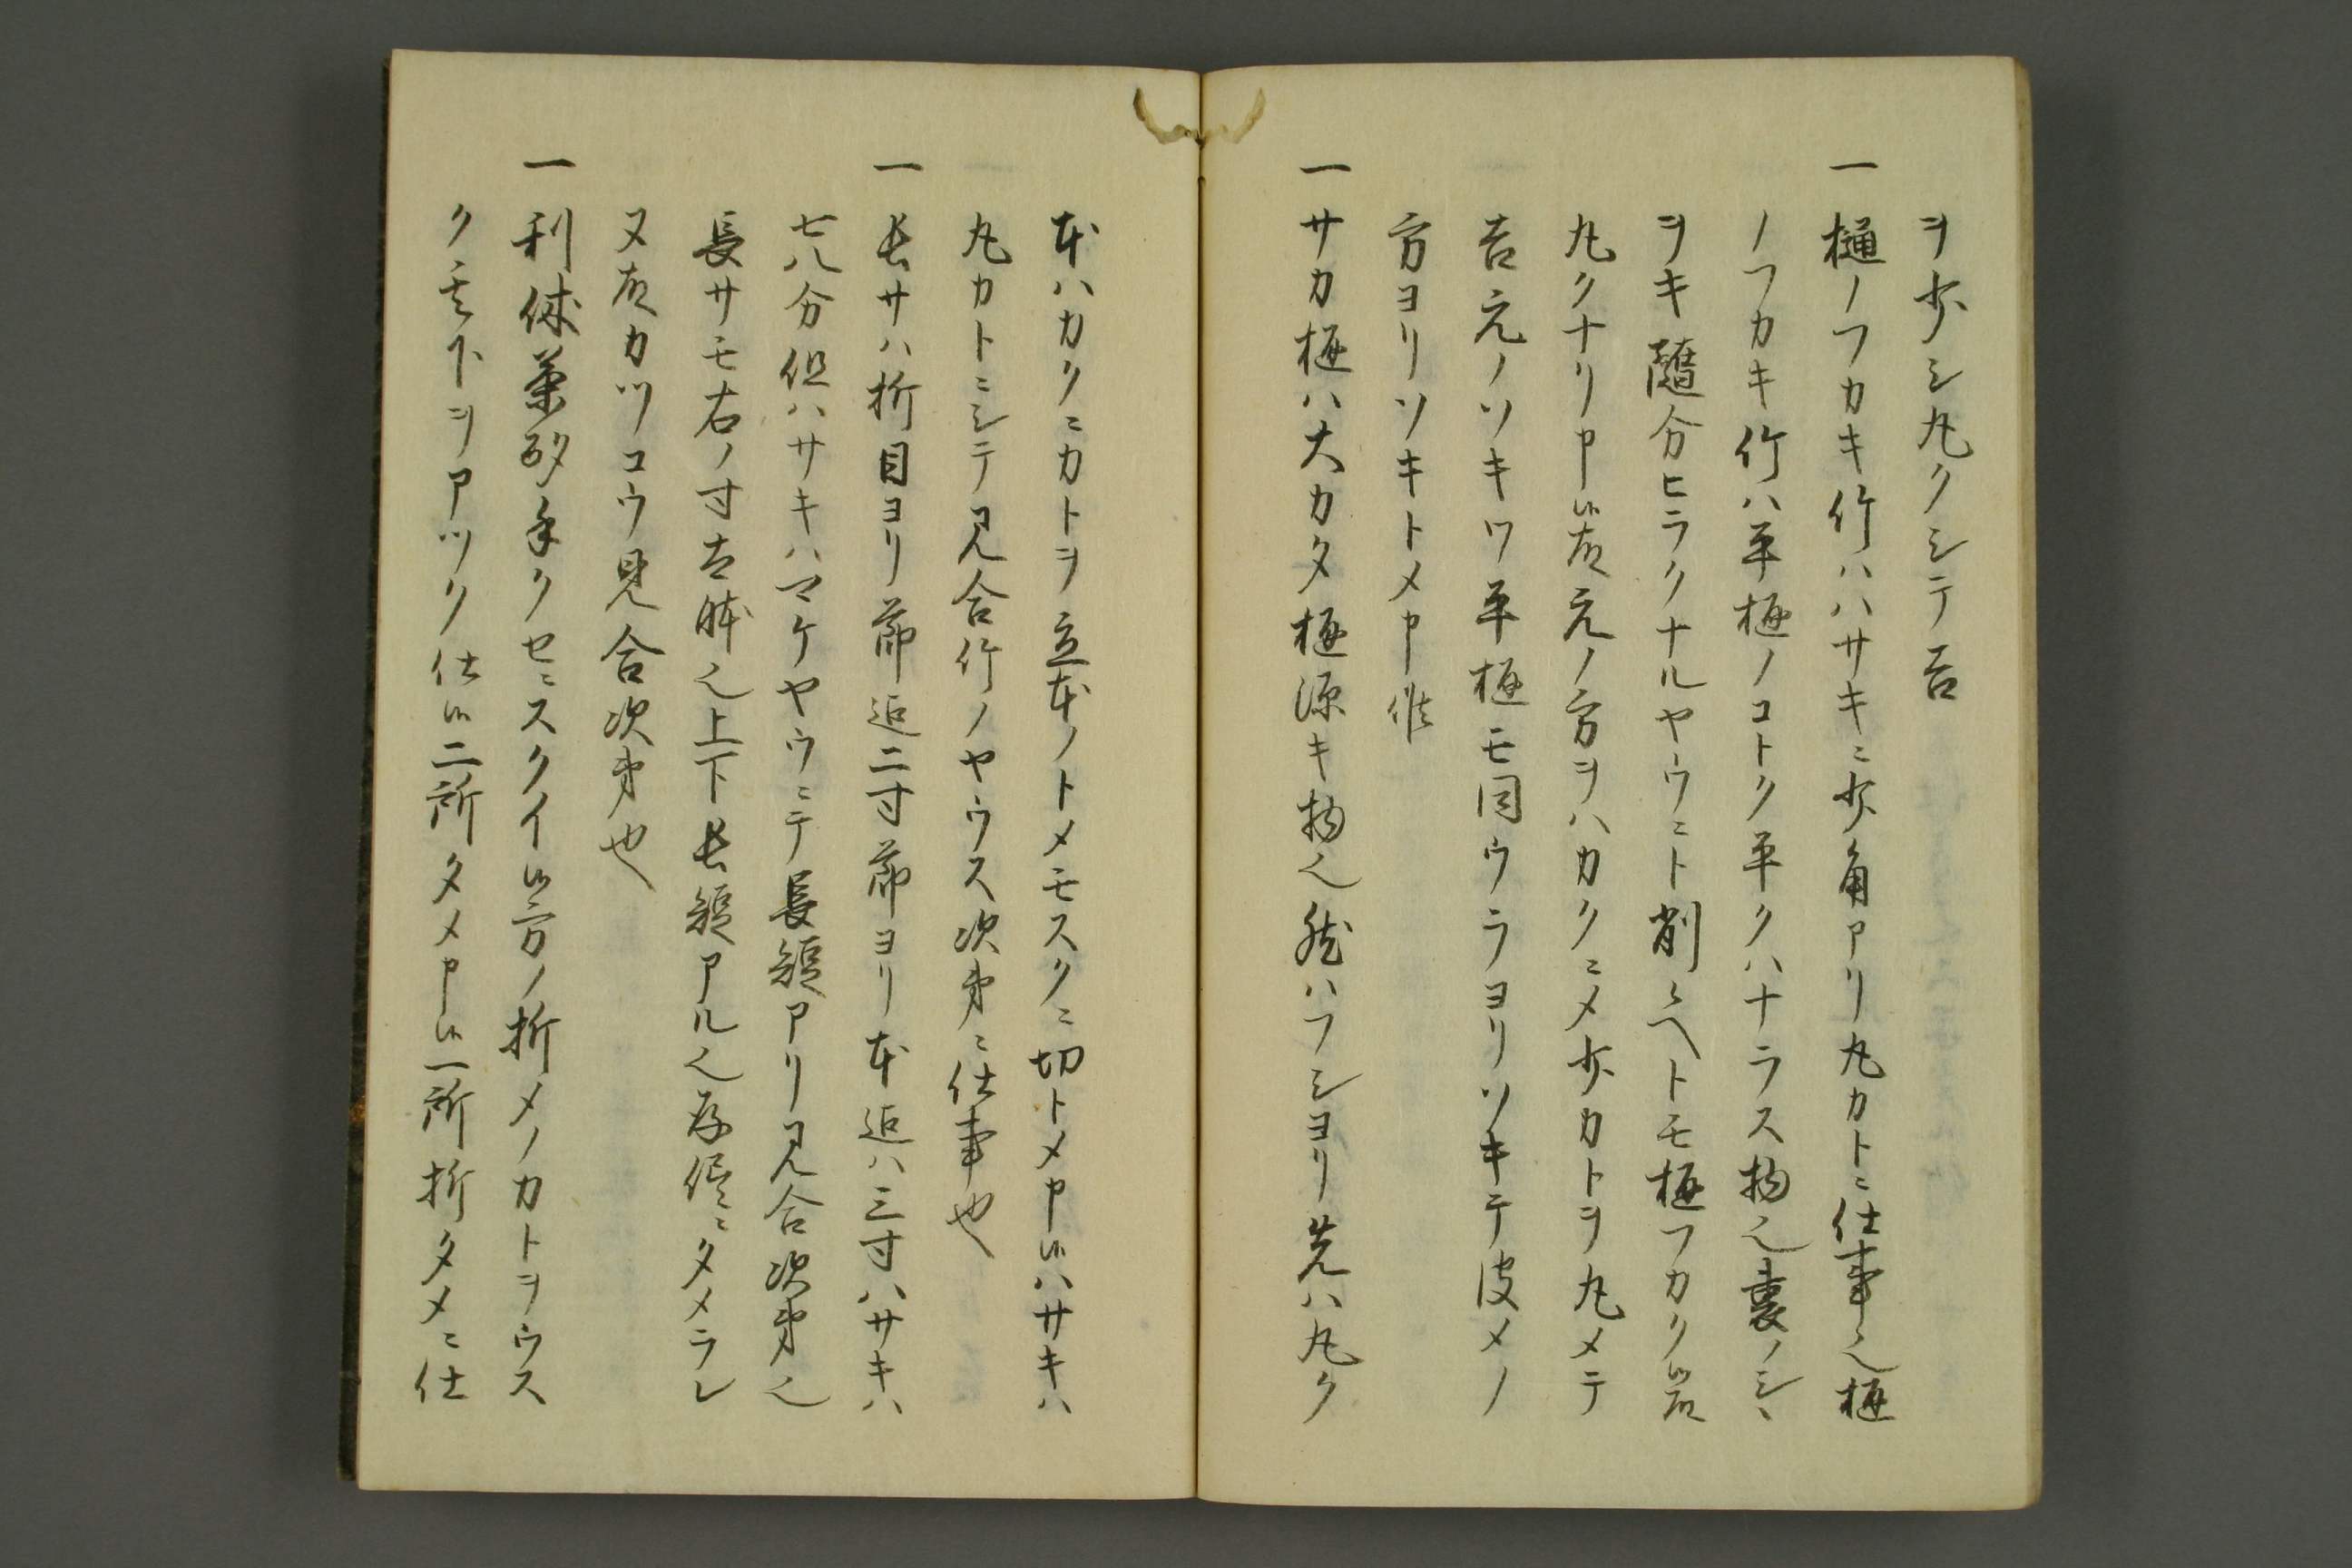 ヲ少シ丸クシテ吉
一 樋ノフカキ竹ハハサキニ少角アリ丸カトニ仕事也樋
ノフカキ竹ハ平樋ノコトク平クハナラス物也裏ノシヽ
ヲキ随分ヒラクナルヤウニト削候ヘトモ樋フカク候故
丸クナリ申候故元ノ方ヲハカクニメ少カトヲ丸メテ
吉元ノソキワ平樋モ同ウラヨリソキテ皮メノ
方ヨリソキトメ申候
一 サカ樋ハ大カタ樋深キ物也然ハフシヨリ先ハ丸ク
本ハカクニカトヲ立本ノトメモスクニ切トメ申候ハサキハ
丸カトニシテ見合竹ノヤウス次第ニ仕事也
一 長サハ折目ヨリ節迄二寸節ヨリ本迄ハ三寸ハサキハ
七八分但ハサキハマケヤウニテ長短アリ見合次第也
長サモ右ノ寸大躰也上下長短アル也存候ニタメラレ
ヌ故カツコウ見合次第也
一 利休薬砂手クセニスクイ候方ノ折メノカトヲウス
ク下ヲアツク仕候二所タメ申候一所折タメニ仕